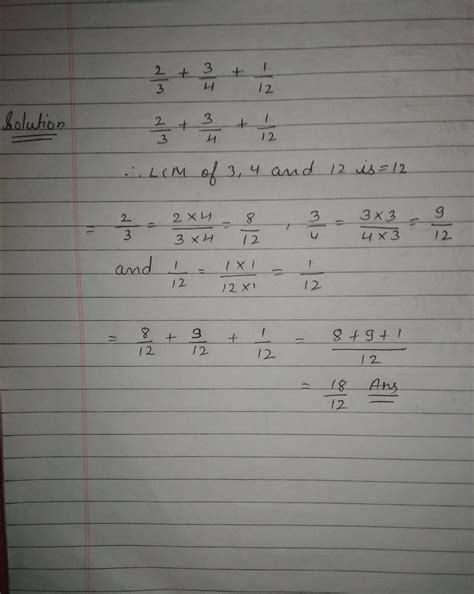 2/3 + 3/4 + 1/12
Solution 2/3 + 3/4 + 1/12
∴ LCM of 3, 4 and 12 is = 12
= 2/3 = 2×4/3×4 = 8/12 , 3/4 = 3×3/4×3 = 9/12
and 1/12 = 1×1/12×1 = 1/12
= 8/12 + 9/12 + 1/12 = 8+9+1/12
= 18/12 Ans